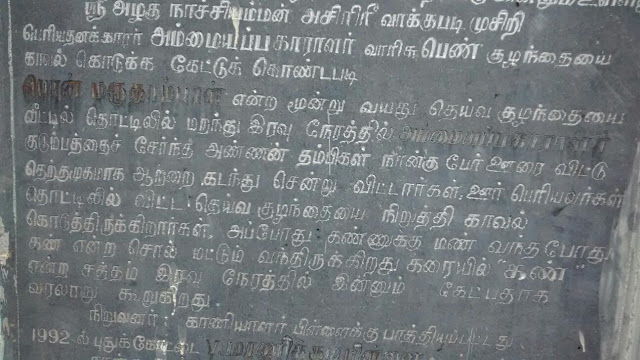 ஸ்ரீ அழகு நாச்சியம்மன் அசிரிரீ வாக்குபடி முசிறி
பெரியதனக்காரர் அம்மையப்ப காராளர் வாரிசு பெண் குழந்தையை
காவல் கொடுக்க கேட்டுக் கொண்டபடி
என்ற மூன்று வயது தெய்வ குழந்தையை
வீட்டில் தொட்டிலில் மறந்து இரவு நேரத்தில்
குடும்பத்தைச் சேர்ந்த அண்ணன் தம்பிகள் நான்கு பேர் ஊரை விட்டு
தெற்குமுகமாக ஆற்றை கடந்து சென்று விட்டார்கள். ஊர் பெரியவர்கள்
தொட்டிலில் விட்ட தெய்வ குழந்தையை நிறுத்தி காவல்
கொடுத்திருக்கிறார்கள். அப்போது கண்ணுக்கு மண் வந்தபோது
கண் என்ற சொல் மட்டும் வந்திருக்கிறது கரையில் "கண்"
என்ற சத்தம் இரவு நேரத்தில் இன்னும் கேட்பதாக
வரலாறு கூறுகிறது
நிறுவனர் காணியாளர் பிள்ளைக்கு பாத்தியப்பட்டது
1992-ல் புதுக்கோட்டை V.